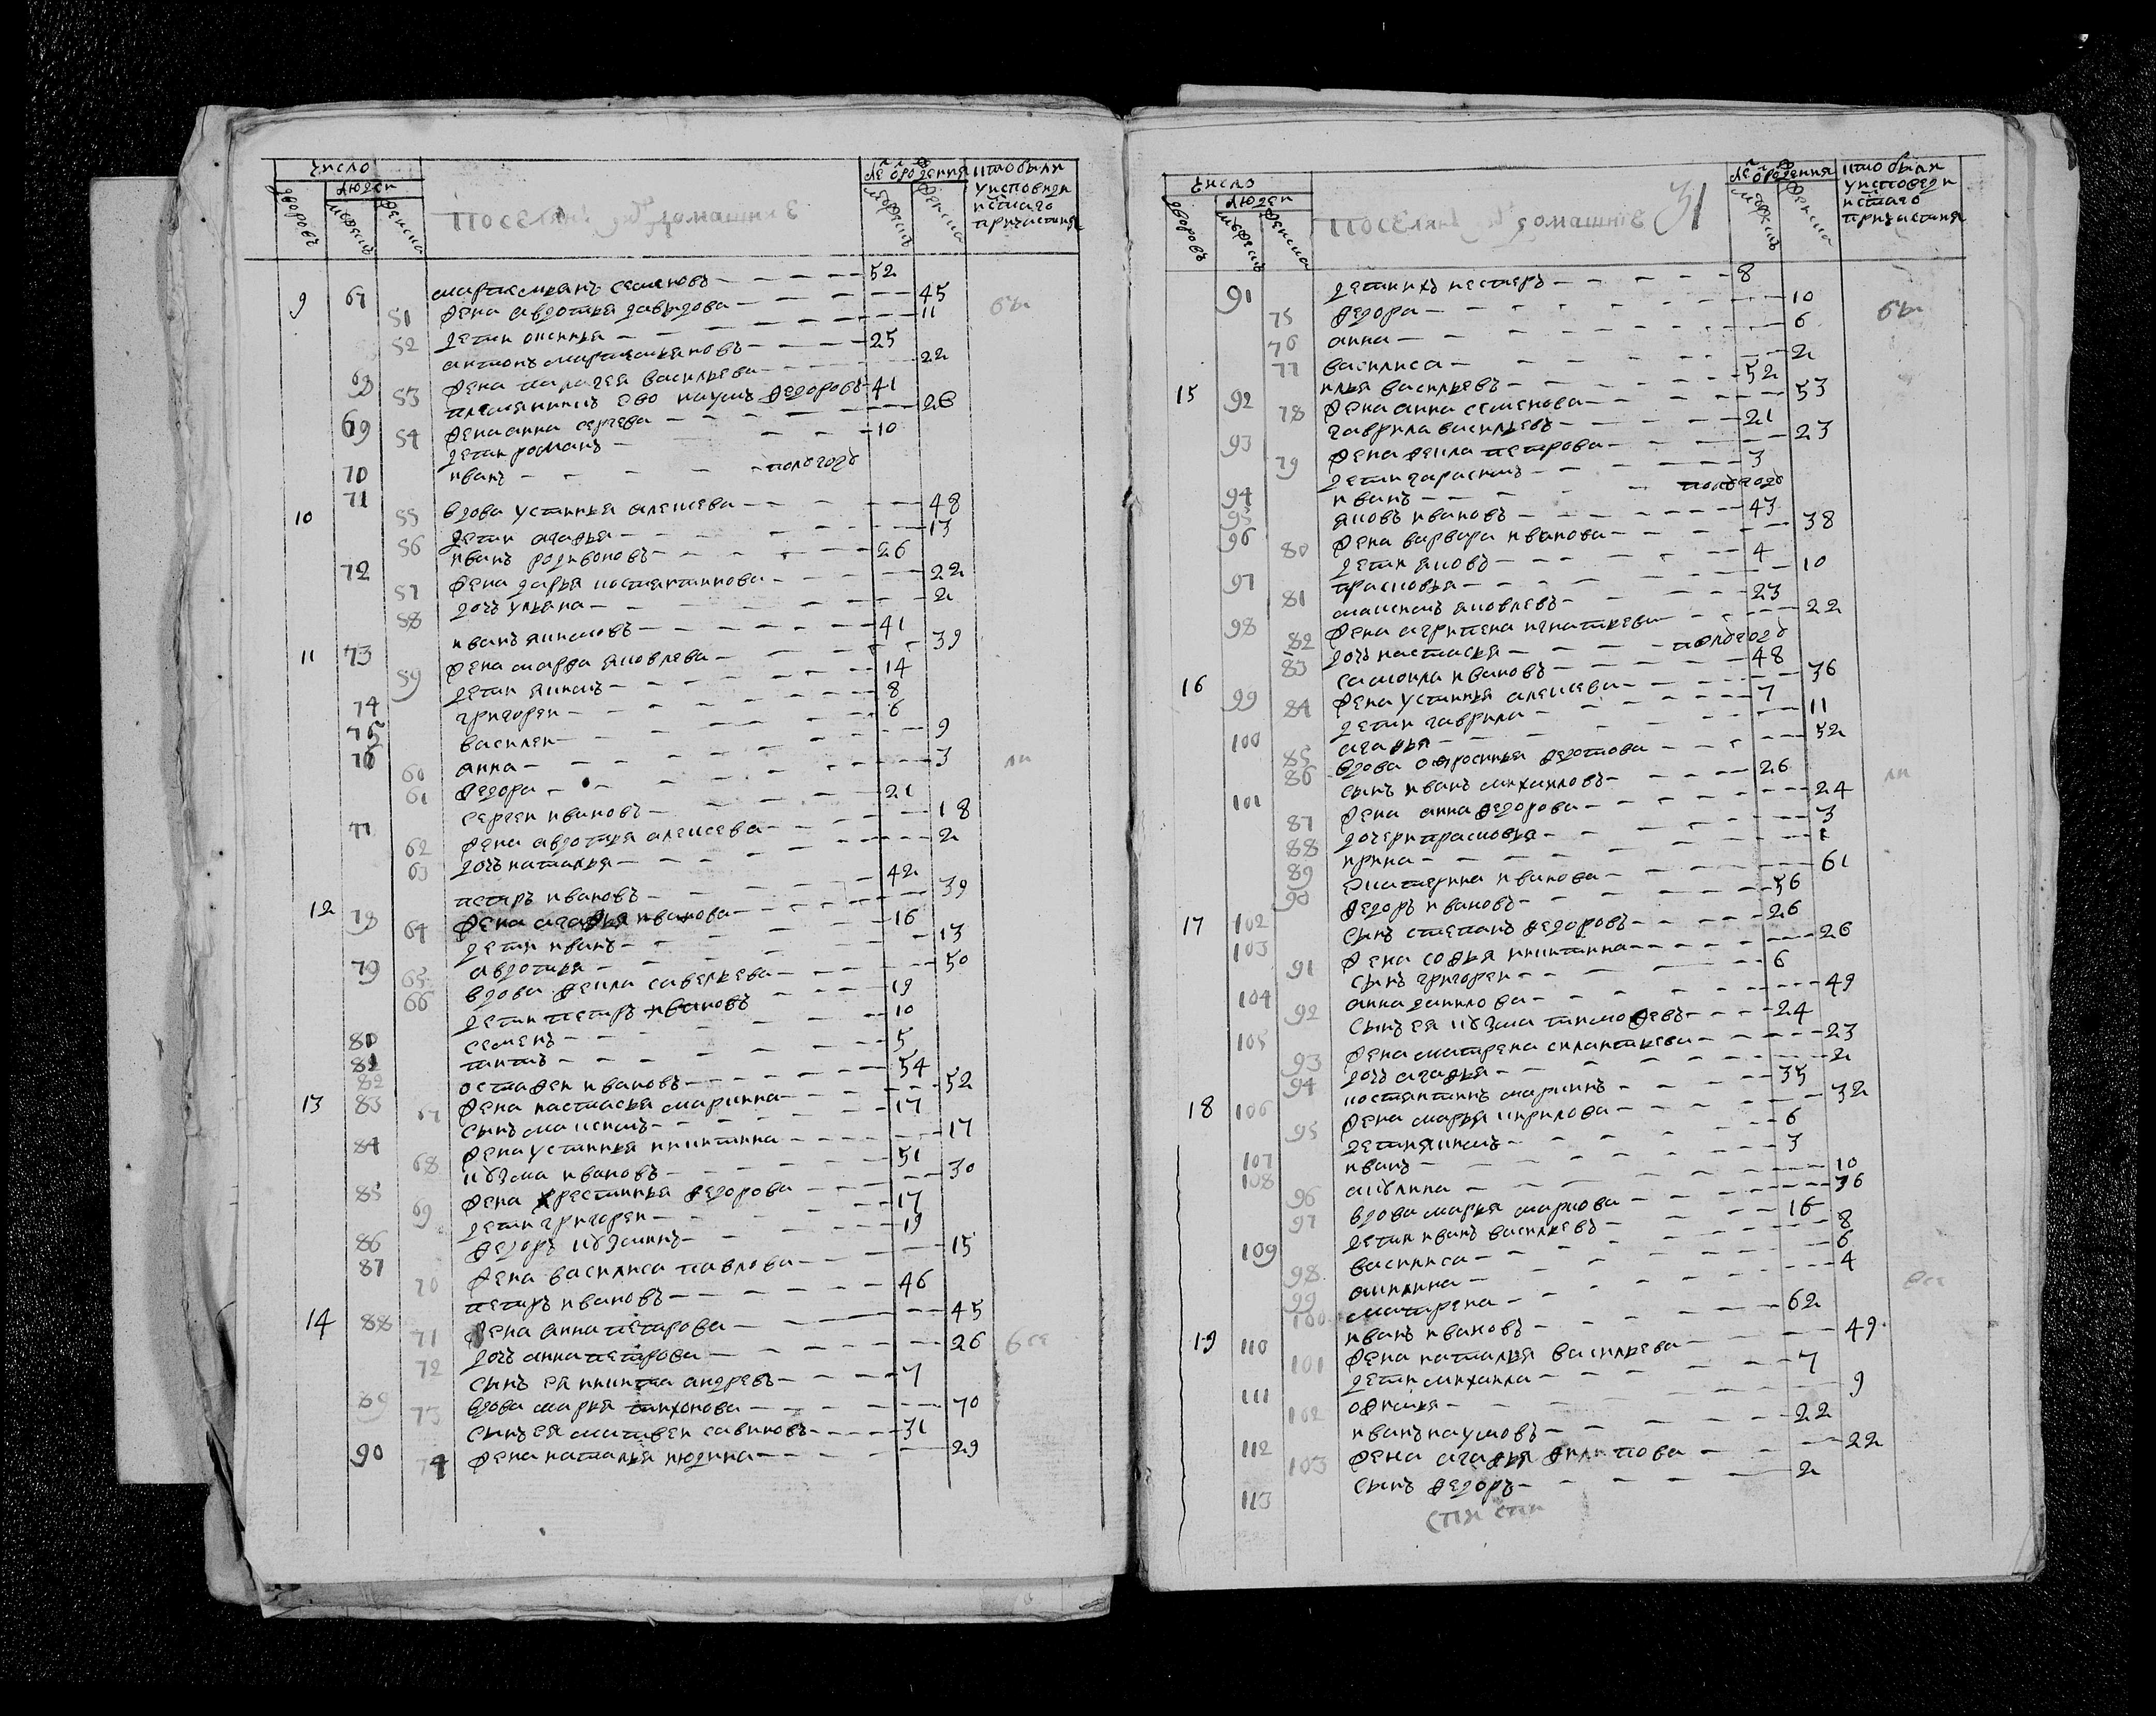 число
людеи
дворовъ
мужескъ
женска
поселяне з домашние
ѿ рождения
мужескъ
женска
кто были у исповеди и с̃таго причастия
9 67 мартемьянъ семеновъ 52
51 жена авдотья давыдова 45
52 дети оксинья 11
антонъ мартемьяновъ 25
53 жена палагея васильева 22
племянникъ ево наумъ федоровъ 41
69 54 жена анна сергева 26
дети романъ 10
70 иванъ полъгода
71
10 55 вдова устинья алексева 48
56 дети агафья 13
иванъ родивоновъ 26
72
57 жена дарья костянтинова 22
58 дочь ульяна 2
иванъ якимовъ 41
11 73 59 жена марфа яковлева 39
дети якимъ 14
74 григореи 8
75 василеи 6
76 60 анна 9
61 федора 3
сергеи ивановъ 21
77 62 жена авдотья алексева 18
63 дочь наталья 2
петръ ивановъ 42
12 78 64 жена агафья иванова 39
дети иванъ 16
79 65 авдотья 13
66 вдова фекла савельева 50
дети петръ ивановъ 19
80 семенъ 10
81 титъ 5
82 остафеи ивановъ 54
13 83 67 жена настасья маркина 52
сынъ максимъ 17
84 68 жена устинья никитина 17
кузма ивановъ 51
85 69 жена христинья федорова 30
дети григореи 17
86 федоръ кузминъ 19
87 70 жена василиса павлова 15
петръ ивановъ 46
14 88 71 жена анна петрова 45
72 дочь анна петрова 26
сынъ ея никита андревъ 7
89 73 вдова марья тихонова 70
сынъ ея матвеи савиновъ 31
90 74 жена наталья июдина 29
бы
ли
все
число
людеи
дворовъ
мужескъ
женска
поселяне з домашние 31
ѿ рождения
мужескъ
женска
кто были у исповеди и с̃таго причастия
91 дети ихъ нестеръ 8
75 федора 10
76 анна 6
77 василиса 2
15 92 илья васильевъ 52
78 жена анна семенова 53
93 гаврила васильевъ 21
79 жена фекла петрова 23
дети гарасимъ 3
94 иванъ полъгода
95 яковъ ивановъ 43
96 80 жена варвара иванова 38
дети яковъ 4
97 81 прасковья 10
максимъ яковлевъ 23
98 82 жена агрипена игнатьева 22
83 дочь настасья полъгода
16 самоила ивановъ 48
99 84 жена устинья алексева 36
дети гаврила 7
100 85 агафья 11
86 вдова офросинья федотова 52
сынъ иванъ михаиловъ 26
101 87 жена анна федорова 24
88 дочери прасковья 3
89 ирина 1
90 екатерина иванова 61
федоръ ивановъ 56
17 102 сынъ степанъ федоровъ 26
103 91 жена софья никитина 26
сынъ григореи 6
104 92 анна данилова 49
сынъ ея кузма тимофевъ 24
105 93 жена матрена силантьева 23
94 дочь агафья 2
костянтинъ маркинъ 35
18 106 95 жена марья кирилова 32
дети якимъ 6
107 иванъ 3
108 96 акулина 10
97 вдова марья маркова 36
дети иванъ васильевъ 16
109 98 василиса 8
99 акилина 6
100 матрена 4
иванъ ивановъ 62
19 110 101 жена наталья васильева 49
дети михаила 7
111 102 офимья 9
иванъ наумовъ 22
112 103 жена агафья филипова 22
сынъ федоръ 2
113
бы
ли
все